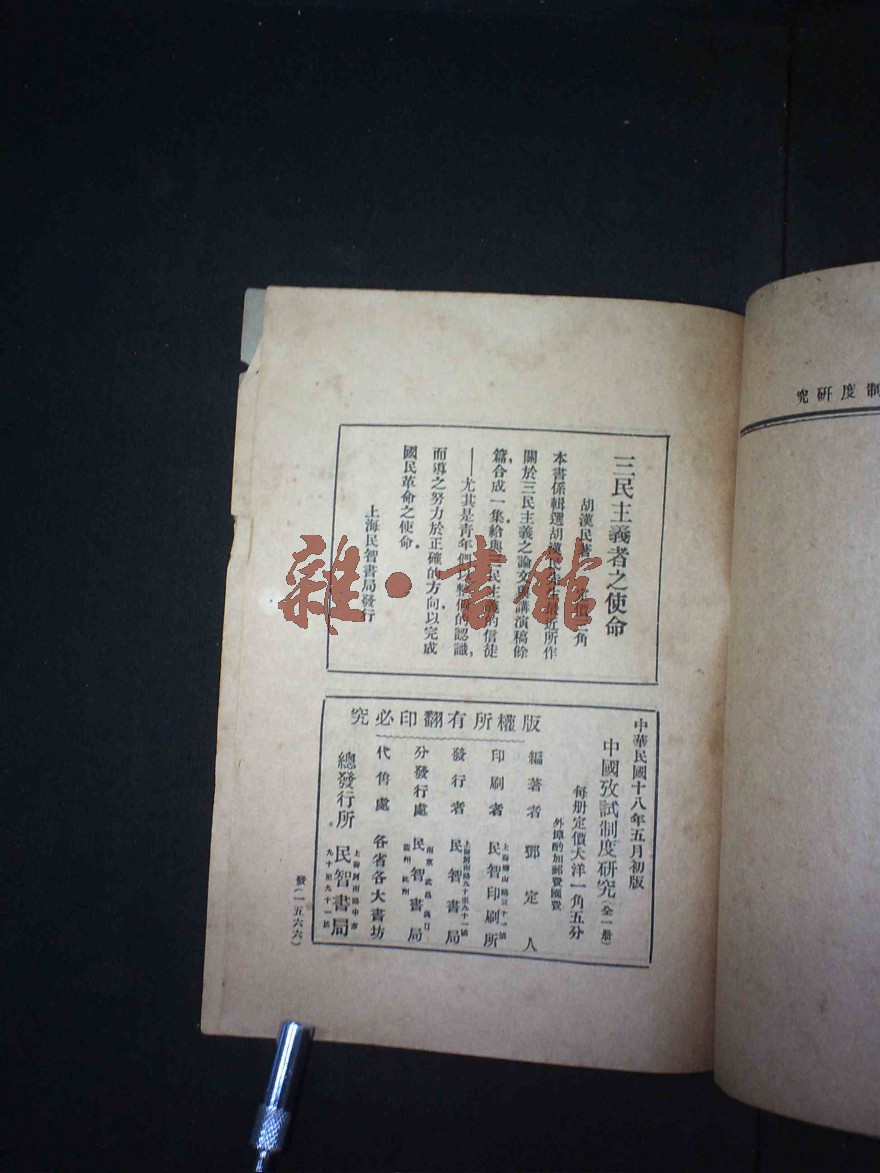 制度研究
三民主義者之使命
胡漢民著
角
本書係輯選胡漢民先生最近所作
關於三民主義之論文與講演稿餘
篇,合成一集給與三民主義的信徒
——尤其是青年們以整個的認識,
而導之努力於正確的方向,以完成
國民革命之使命。
上海民智書局發行
雜·書館
版權所有翻印必究
中華民國十八年五月初版
中國攷試制度研究(全一册)
每册定價大洋一角五分
外埠酌加郵費匯費
編著者 鄧定人
印刷者 民智印刷所
發行者 上海河南路九十至九十一號 民智書局
分發行處 南京 武昌 漢口 廣州 杭州 民智書局
代售處 各省各大書坊
總發行所 上海河南路中市九十至九十一號 民智書局
發(一五六六)